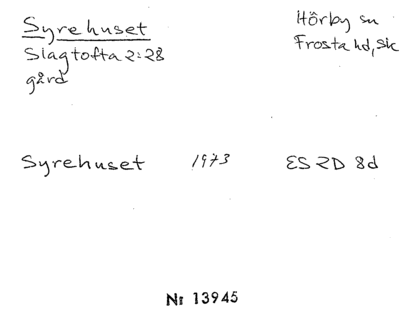 Syrehuset Hörby sn
Slagtofta 2:28 Frosta hd, Sk
gård
Syrehuset 1973 ES 2D 8d
Nr 13945